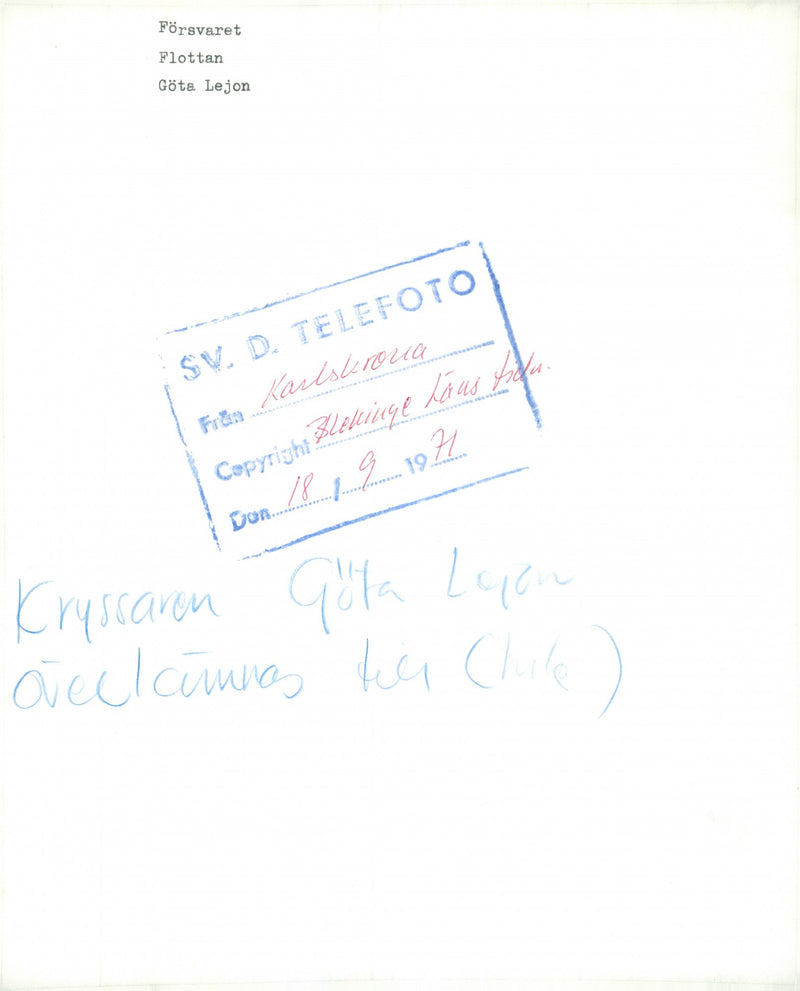 Försvaret
Flottan
Göta Lejon
SV. D. TELEFOTO
Från Karlskrona
Copyright Blekinge Läns tidn.
Den 18 / 9 1971
Kryssaren Göta Lejon
överlämnas till Chile)